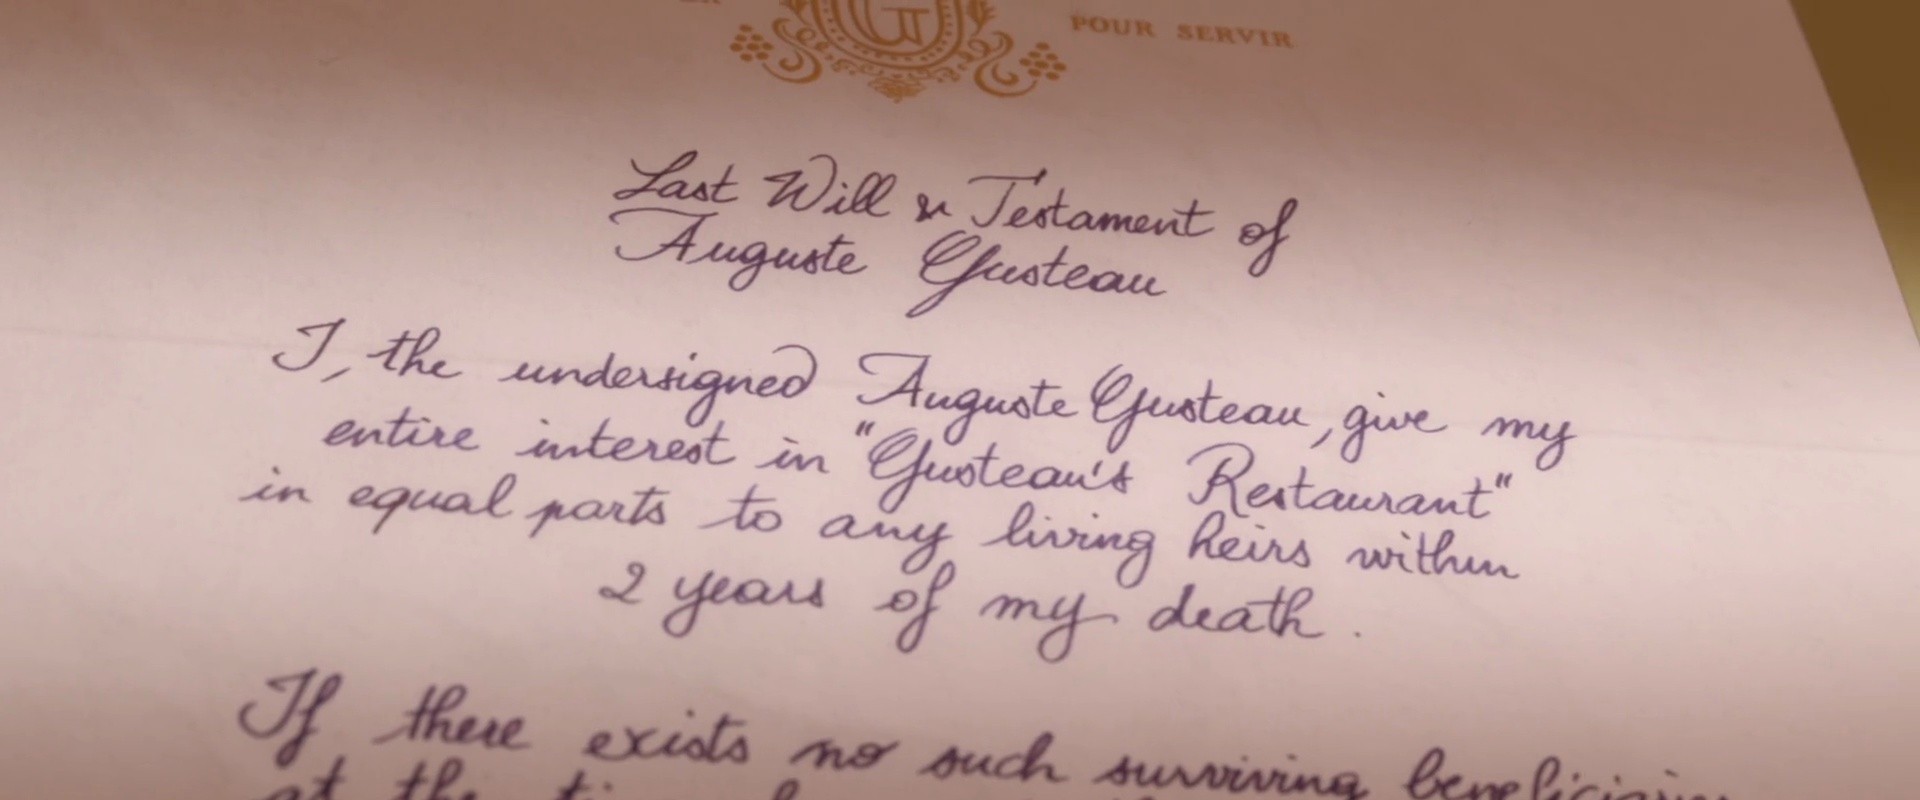 POUR SERVIR
Last Will & Testament of
Auguste Gusteau
I, the undersigned Auguste Gusteau, give my
entire interest in "Gusteau's Restaurant"
in equal parts to any living heirs within
2 years of my death.
If there exists no such surviving
at the